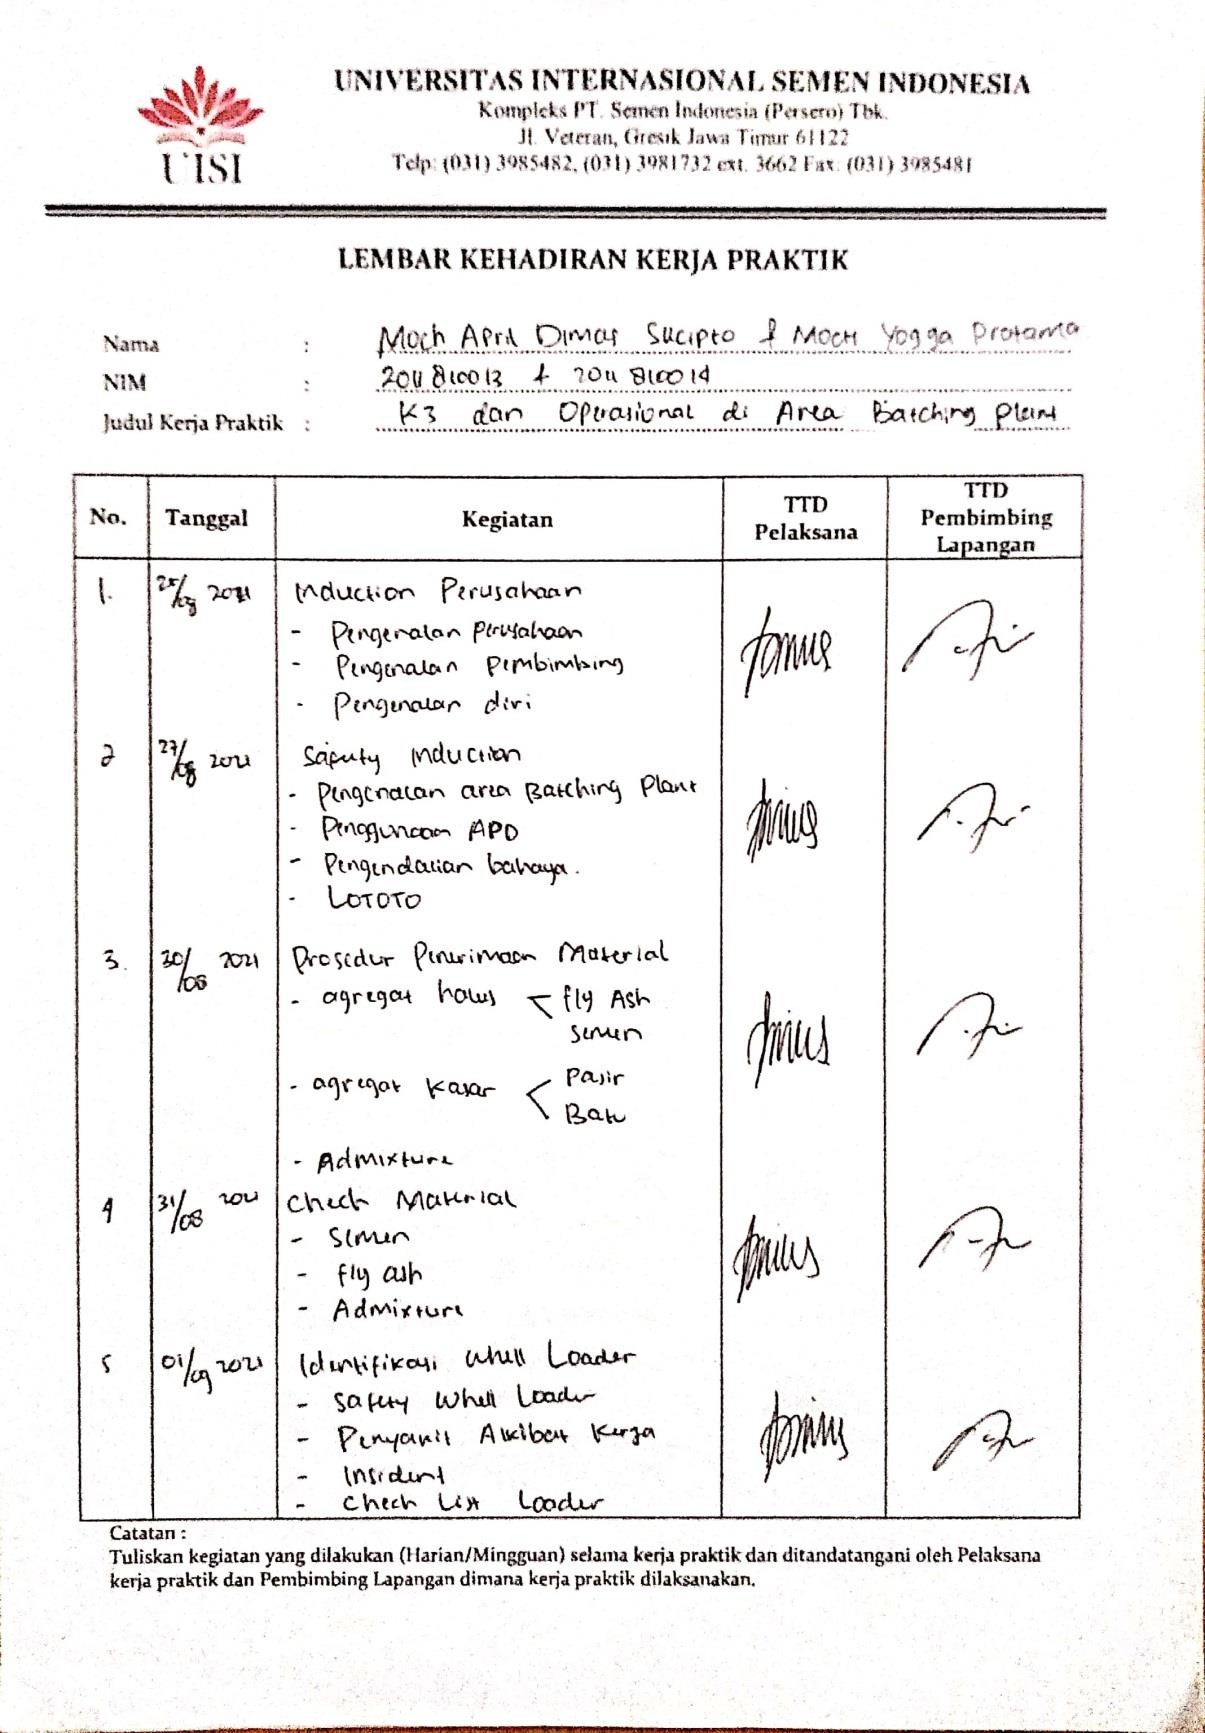 UISI
UNIVERSITAS INTERNASIONAL SEMEN INDONESIA
Kompleks PT. Semen Indonesia (Persero) Tbk.
Jl. Veteran, Gresik Jawa Timur 61122
Telp: (031) 3985482, (031) 3981732 ext. 3662 Fax. (031) 3985481
LEMBAR KEHADIRAN KERJA PRAKTIK
Nama : Moch April Dimas Sucipto & Moch Yogga Pratama
NIM : 2011810013 & 2011810014
Judul Kerja Praktik : K3 dan Operasional di Area Batching Plant
No. Tanggal Kegiatan TTD Pelaksana TTD Pembimbing Lapangan
1. 25/08 2021 Induction Perusahaan
- Pengenalan perusahaan
- Pengenalan Pembimbing
- Pengenalan diri
2 27/08 2021 Safuty Induction
- Pengenalan area Batching Plant
- Penggunaan APD
- Pengendalian bahaya.
- LOTOTO
3. 30/08 2021 Prosedur Penerimaan Material
- agregat halus < fly Ash
semen
- agregat Kasar < Pasir
Batu
- Admixture
4 31/08 2021 Check Material
- Semen
- fly ash
- Admixture
5 01/09 2021 Identifikasi Whell Loader
- Safety Whell Loader
- Penyakit Akibat Kerja
- Insident
- Check List Loader
Catatan :
Tuliskan kegiatan yang dilakukan (Harian/Mingguan) selama kerja praktik dan ditandatangani oleh Pelaksana
kerja praktik dan Pembimbing Lapangan dimana kerja praktik dilaksanakan.